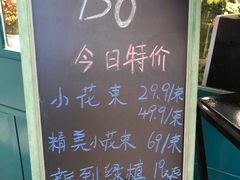 今日特价
小花束 29.9/束
49.9/束
精美小花束 69/束
新到绿植